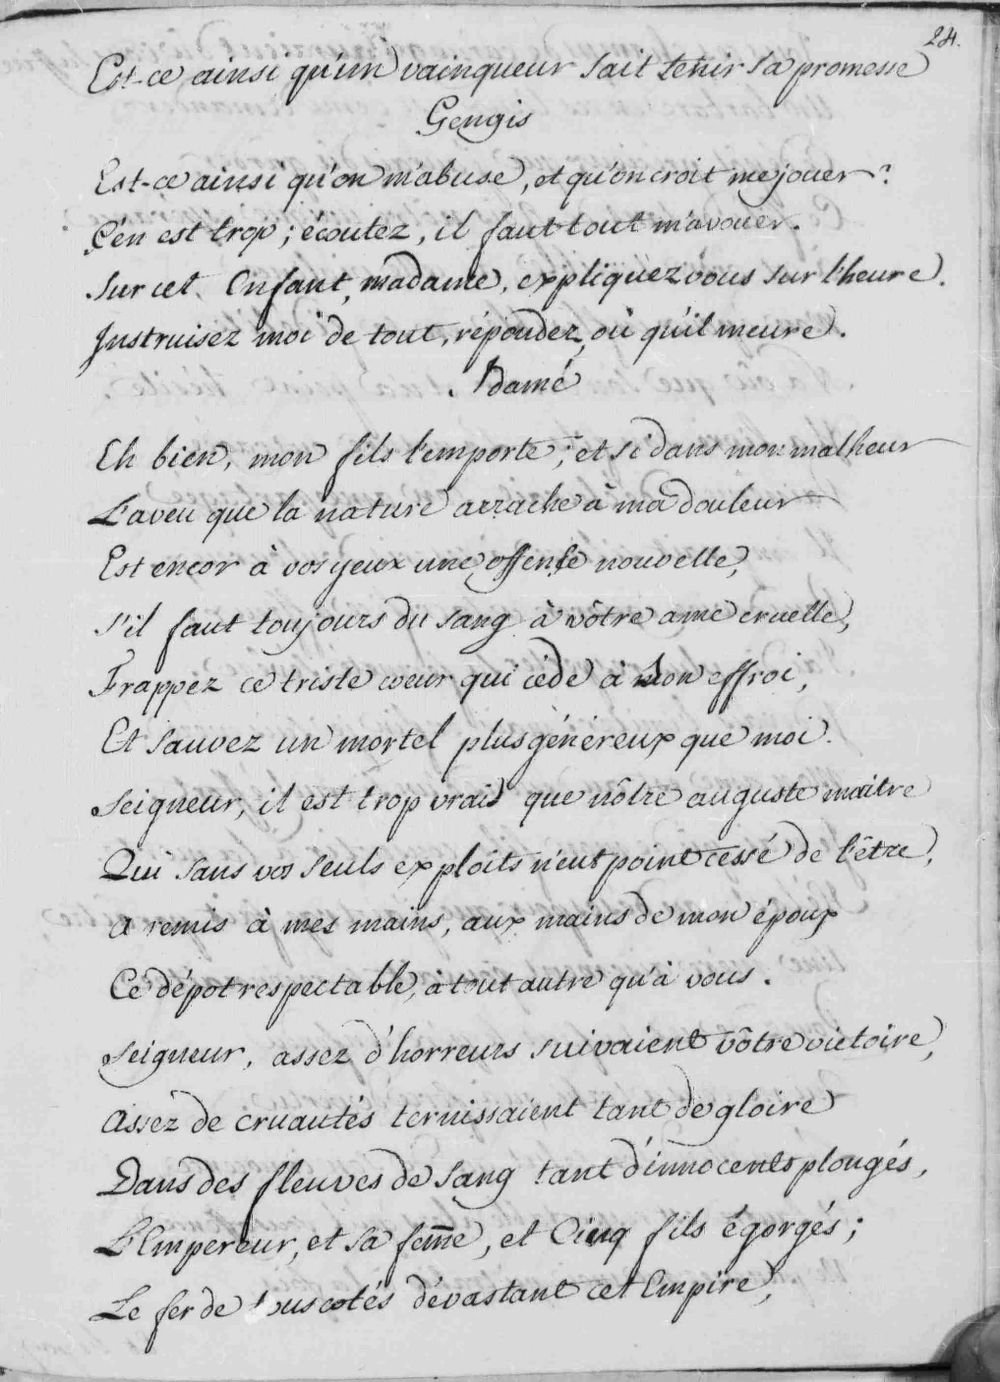 24.
Est-ce ainsi qu'un vainqueur sait tenir sa promesse
Gengis
Est-ce ainsi qu'on m'abuse, et qu'on croit me jouer?
C'en est trop; écoutez, il faut tout m'avouer.
Sur cet Enfant, madame, expliquez vous sur l'heure.
Instruisez moi de tout, répondez, où qu'il meure.
Idamé
Eh bien, mon fils l'emporte; et si dans mon malheur
L'aveu que la nature arrache à ma douleur
Est encor à vos yeux une offense nouvelle,
S'il faut toujours du sang à vôtre ame cruelle,
Frappez ce triste coeur qui cède à son effroi,
Et sauvez un mortel plus généreux que moi.
Seigneur, il est trop vrai que nôtre auguste maitre
Qui sans vos seuls exploits n'eut point cessé de l'être,
A remis à mes mains, aux mains de mon époux
Ce dépot respectable, à tout autre qu'à vous.
Seigneur, assez d'horreurs suivaient vôtre victoire,
Assez de cruautés ternissaient tant de gloire
Dans des fleuves de sang tant d'innocents plongés,
L'Empereur, et sa feme, et Cinq fils égorgés;
Le fer de tous cotés dévastant cet Empire,